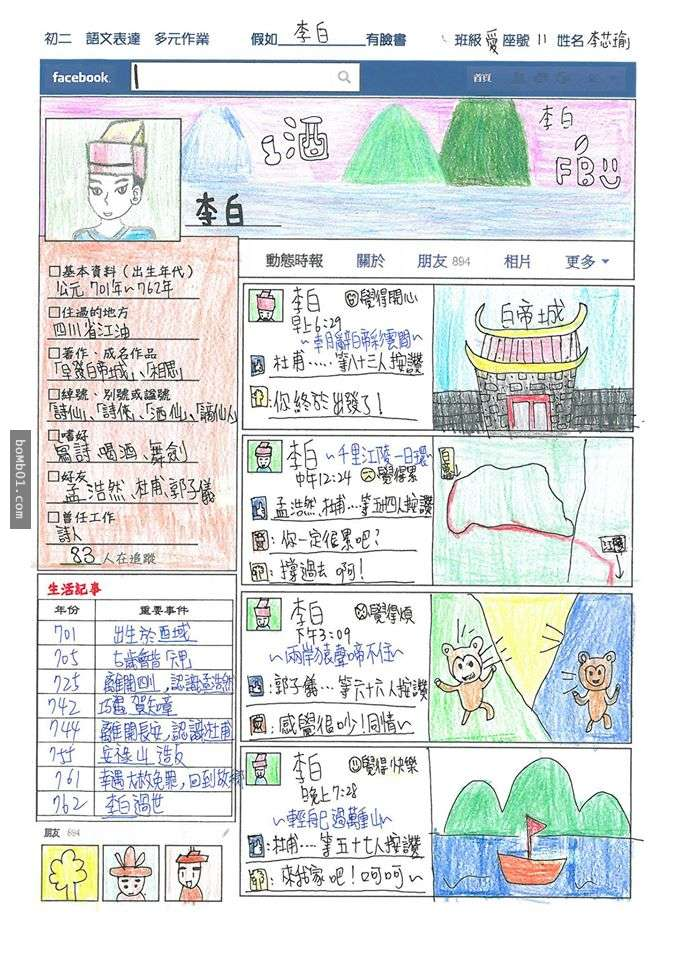 初二 語文表達 多元作業 假如 李白 有臉書 班級 愛 座號 11 姓名 李芯瑜
facebook
首頁
酒
李白
FB
李白
動態時報 關於 朋友 894 相片 更多
□基本資料(出生年代)
公元 701年~762年
□住過的地方
四川省江油
□著作、成名作品
「早發白帝城」、「相思」
□綽號、別號或諡號
「詩仙」、「詩俠」、「酒仙」、「謫仙人」
□嗜好
寫詩、喝酒、舞劍
□好友
孟浩然、杜甫、郭子儀
□曾任工作
詩人
83 人在追蹤
生活記事
年份 重要事件
701 出生於西域
705
725 離開四川，認識孟浩然
742 巧遇賀知章
744 離開長安，認識杜甫
755 安祿山造反
761 幸遇大赦免罪，回到故鄉
762 李白過世
朋友 894
李白 覺得開心
早上6:29
~朝辭白帝彩雲間~
杜甫.....等八十三人按讚
:你終於出發了!
白帝城
李白 ~千里江陵一日還~
中午12:24 覺得累
孟浩然、杜甫...等五十四人按讚
:你一定很累吧?
:撐過去啊!
白帝
江陵
李白 覺得煩
下午3:09
~兩岸猿聲啼不住~
:郭子儀...等六十六人按讚
:感覺很吵!同情~
李白 覺得快樂
晚上7:28
~輕舟已過萬重山~
:杜甫...等五十七人按讚
:來我家吧!呵呵~
bomb01.com